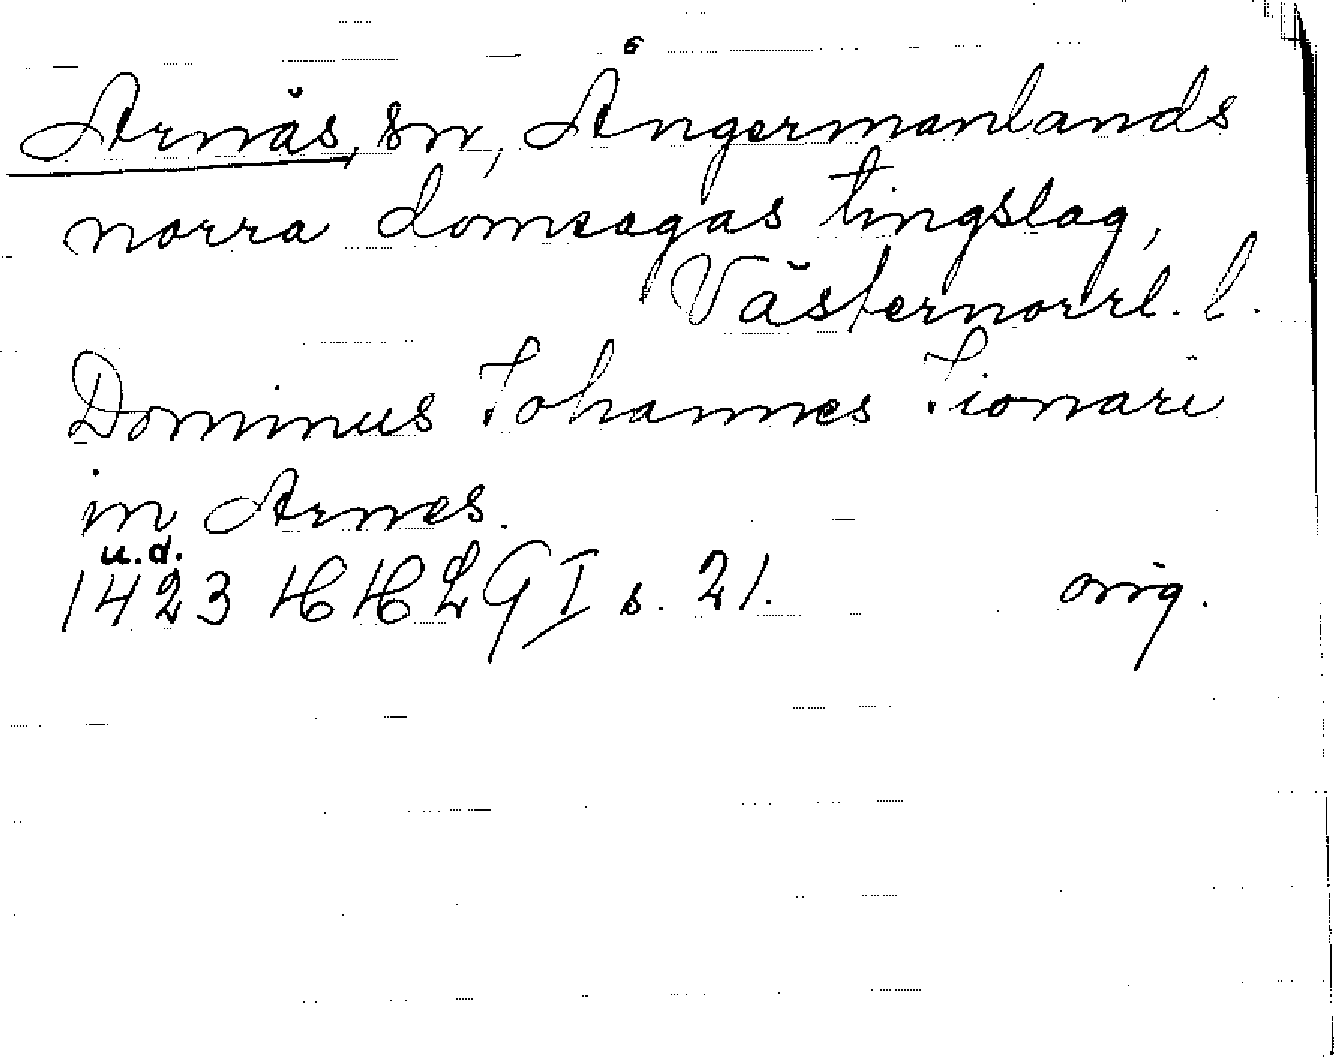 Arnäs, sn, Ångermanlands
norra domsagas tingslag,
Västernorrl. l.
Dominus Johannes Jionari
in Arnes.
u.d.
1423 HHLG I s. 21. orig.